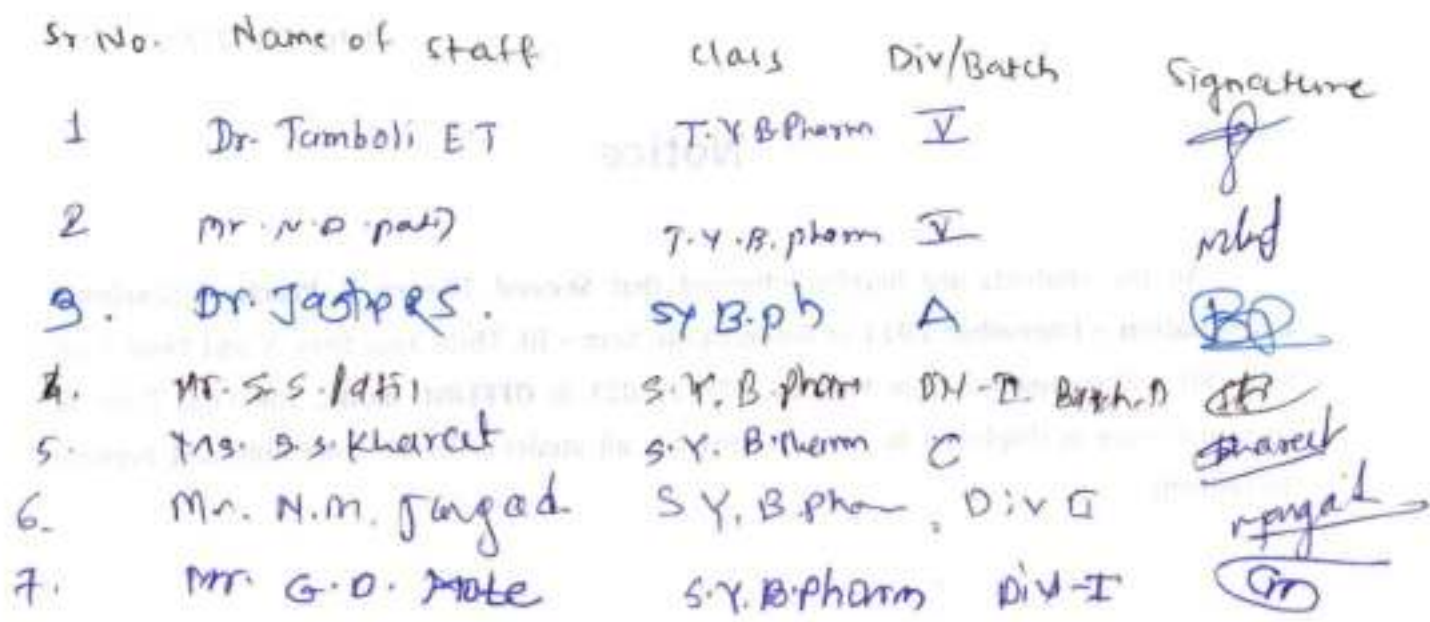 Sr No. Name of Staff Class Div/Batch Signature
1 Dr. Tamboli E T T.Y B.Pharm V
2 Mr. N.D. Patil T.Y.B. pharm V
3. Dr Jagtap RS. SY B.ph A
4. Mr. S.S. Patil S.Y. B pharm Div-II Batch.D
5. Ms. S.S. Kharat S.Y. B.Pharm C Kharat
6. Mr. N.M. Gangad S Y. B.pharm, Div II
7. Mr. G.D. Mote S.Y. B.Pharm Div-I